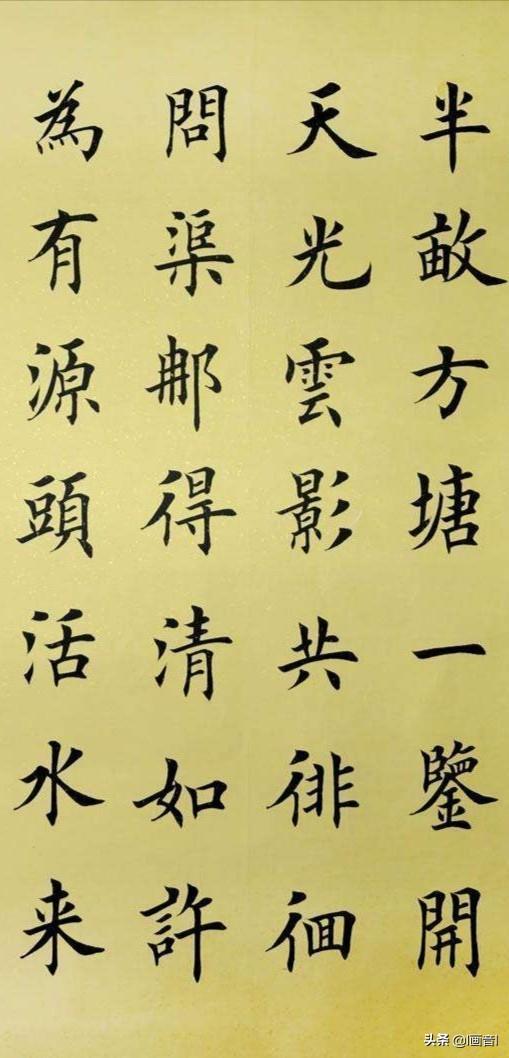 半畝方塘一鑒開
天光雲影共徘徊
問渠那得清如許
為有源頭活水来
头条 @I画音I